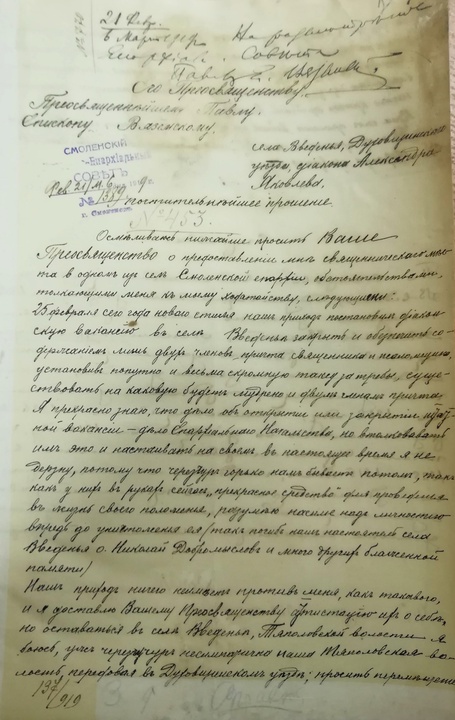 21 Февр.
6 Марта 1919
На рассмотрѣніе
Епархіал. Совѣта
Павелъ Е. Вяземскій
Его Преосвященству
Преосвященнѣйшему Павлу,
Епископу Вяземскому.
СМОЛЕНСКІЙ
Епархіальный
СОВѢТЪ
Фев. 21/М. 6 1919 г.
№ 1379
г. Смоленскъ
села Введенья, Духовщинскаго
уѣзда, діакона Александра
Яковлева,
почтительнѣйшее прошеніе
№ 453.
Осмѣливаюсь нижайше просить Ваше
Преосвященство о предоставленіи мнѣ священническаго мѣс-
та в одномъ изъ селъ Смоленской епархіи. Обстоятельствами,
толкающими меня къ моему ходатайству, слѣдующія:
25 февраля сего года новаго стиля нашъ приходъ постановилъ діакон-
скую вакансію въ селѣ Введенья закрыть и обезпечить со-
держаніемъ лишь двухъ членовъ причта священника и псаломщика,
установивъ попутно и весьма скромную таксу за требы, суще-
ствовать на каковую будетъ мудрено и двумъ членамъ причта.
Я прекрасно знаю, что дѣло объ открытіи или закрытіи штат-
ной вакансіи – дѣло Епархіальнаго Начальства, но втолковывать
имъ это и настаивать на своемъ въ настоящее время я не
дерзну, потому что черезчуръ горько намъ бываетъ потомъ, такъ
какъ у нихъ въ рукахъ сейчасъ „прекрасное средство" для проведенія
въ жизнь своего положенья, разумѣю насиліе надъ личностью
впредь до уничтоженья ея (такъ погибъ нашъ настоятель села
Введенья о. Николай Добромысловъ и много другихъ блаженной
памяти)
Нашъ приходъ ничего не имѣетъ противъ меня, какъ такового,
и я доставлю Вашему Преосвященству аттестацію ихъ о себѣ,
но оставаться въ селѣ Введенья, Тяполовской волости – я
боюсь, ужъ черезчуръ несимпатична наша Тяполовская во-
лость, передовая въ Духовщинскомъ уѣздѣ; просить перемѣщенія
197/919